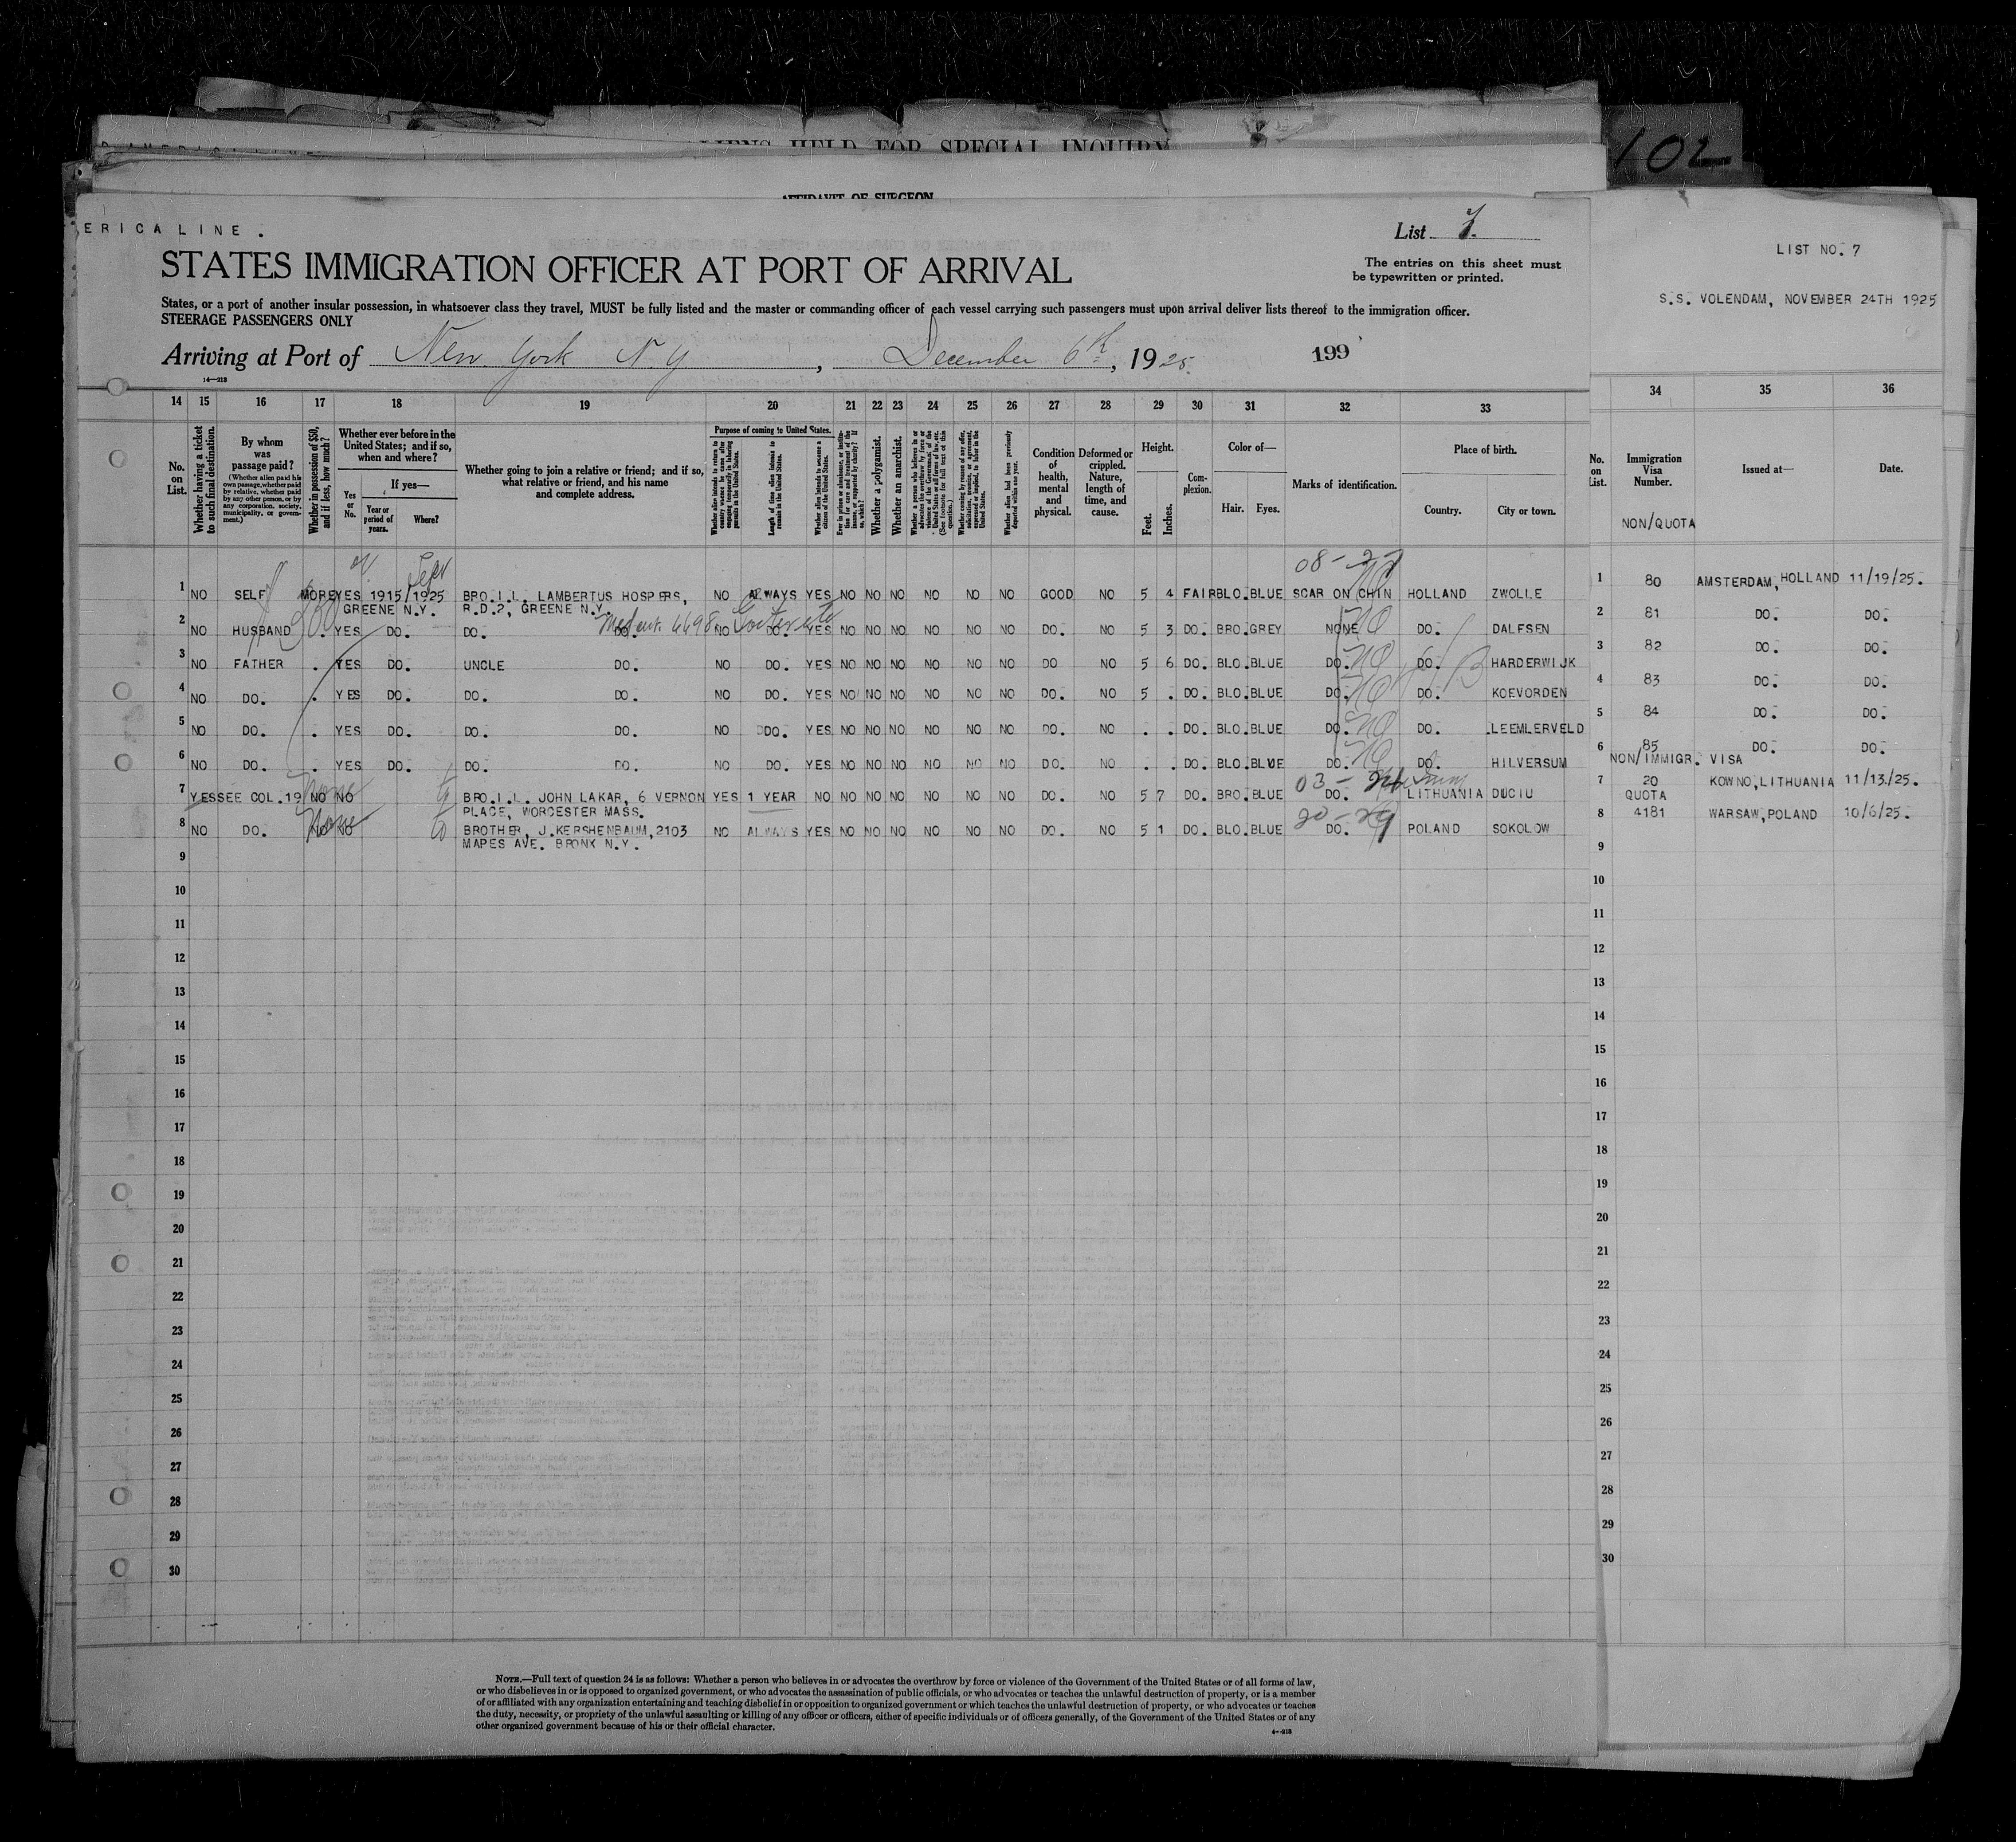 102
ALIENS HELD FOR SPECIAL INQUIRY
AFFIDAVIT OF SURGEON
ERICA LINE.
List 7.
STATES IMMIGRATION OFFICER AT PORT OF ARRIVAL
The entries on this sheet must
be typewritten or printed.
States, or a port of another insular possession, in whatsoever class they travel, MUST be fully listed and the master or commanding officer of each vessel carrying such passengers must upon arrival deliver lists thereof to the immigration officer.
STEERAGE PASSENGERS ONLY
Arriving at Port of New York N.Y, December 6th, 1925.
199
14—213
LIST NO. 7
S.S. VOLENDAM, NOVEMBER 24TH 1925
14 15 16 17 18 19 20 21 22 23 24 25 26 27 28 29 30 31 32 33 34 35 36
No. on List.
Whether having a ticket to such final destination.
By whom was passage paid?
(Whether alien paid his own passage, whether paid by relative, whether paid by any other person, or by any corporation, society, municipality, or government.)
Whether in possession of $50, and if less, how much?
Whether ever before in the United States; and if so, when and where?
Yes or No.
If yes—
Year or period of years.
Where?
Whether going to join a relative or friend; and if so, what relative or friend, and his name and complete address.
Purpose of coming to United States.
Length of time alien intends to remain in the United States.
Whether alien intends to become a citizen of the United States.
Whether a polygamist.
Whether an anarchist.
Condition of health, mental and physical.
Deformed or crippled. Nature, length of time, and cause.
Height.
Feet.
Inches.
Complexion.
Color of—
Hair.
Eyes.
Marks of identification.
Place of birth.
Country.
City or town.
No. on List.
Immigration Visa Number.
Issued at—
Date.
NON/QUOTA
08-27
1 NO SELF MORE YES 1915/1925 BRO.I.L. LAMBERTUS HOSPERS, NO ALWAYS YES NO NO NO NO NO NO GOOD NO 5 4 FAIR BLO. BLUE SCAR ON CHIN HOLLAND ZWOLLE 1 80 AMSTERDAM, HOLLAND 11/19/25.
GREENE N.Y. R.D.2, GREENE N.Y.
2 NO HUSBAND . YES DO. DO. DO. NO DO. YES NO NO NO NO NO NO DO. NO 5 3 DO. BRO. GREY NONE DO. DALFSEN 2 81 DO. DO.
3 NO FATHER . YES DO. UNCLE DO. NO DO. YES NO NO NO NO NO NO DO NO 5 6 DO. BLO. BLUE DO. DO. HARDERWIJK 3 82 DO. DO.
4 NO DO. . YES DO. DO. DO. NO DO. YES NO NO NO NO NO NO DO. NO 5 . DO. BLO. BLUE DO. DO. KOEVORDEN 4 83 DO. DO.
5 NO DO. . YES DO. DO. DO. NO DO. YES NO NO NO NO NO NO DO. NO . . DO. BLO. BLUE DO. DO. LEEMLERVELD 5 84 DO. DO.
6 NO DO. . YES DO. DO. DO. NO DO. YES NO NO NO NO NO NO DO. NO . . DO. BLO. BLUE DO. DO. HILVERSUM 6 85 DO. DO.
NON/IMMIGR. VISA
7 YES SEE COL.19 NO NO BRO.I.L. JOHN LAKAR, 6 VERNON YES 1 YEAR NO NO NO NO NO NO NO DO. NO 5 7 DO. BRO. BLUE DO. LITHUANIA DUCIU 7 20 KOWNO, LITHUANIA 11/13/25.
PLACE, WORCESTER MASS. QUOTA
8 NO DO. NO BROTHER, J.KERSHENBAUM, 2103 NO ALWAYS YES NO NO NO NO NO NO DO. NO 5 1 DO. BLO. BLUE DO. POLAND SOKOLOW 8 4181 WARSAW, POLAND 10/6/25.
MAPES AVE. BRONX N.Y.
9 9
10 10
11 11
12 12
13 13
14 14
15 15
16 16
17 17
18 18
19 19
20 20
21 21
22 22
23 23
24 24
25 25
26 26
27 27
28 28
29 29
30 30
NOTE.—Full text of question 24 is as follows: Whether a person who believes in or advocates the overthrow by force or violence of the Government of the United States or of all forms of law,
or who disbelieves in or is opposed to organized government, or who advocates the assassination of public officials, or who advocates or teaches the unlawful destruction of property, or is a member
of or affiliated with any organization entertaining and teaching disbelief in or opposition to organized government or which teaches the unlawful destruction of property, or who advocates or teaches
the duty, necessity, or propriety of the unlawful assaulting or killing of any officer or officers, either of specific individuals or of officers generally, of the Government of the United States or of any
other organized government because of his or their official character.